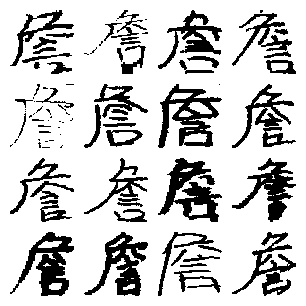 詹詹詹詹
詹詹詹詹
詹詹詹詹
詹詹詹詹